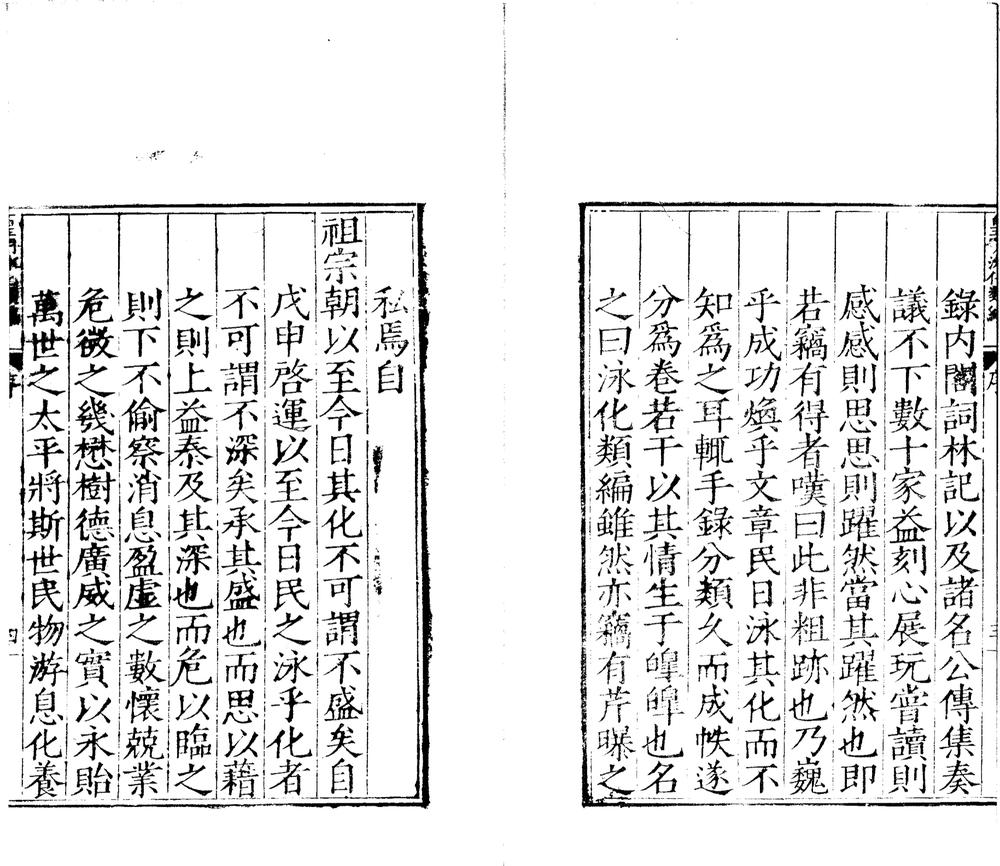 錄内閣詞林記以及諸名公傳集奏
議不下數十家益刻心展玩嘗讀則
感感則思思則躍然當其躍然也即
若竊有得者嘆曰此非粗跡也乃巍
乎成功煥乎文章民日泳其化而不
知爲之耳輒手錄分類久而成帙遂
分爲卷若干以其情生于皡皡也名
之曰泳化類編雖然亦竊有芹曝之
私焉自
祖宗朝以至今日其化不可謂不盛矣自
戊申啓運以至今日民之泳乎化者
不可謂不深矣承其盛也而思以藉
之則上益泰及其深也而危以臨之
則下不偷察消息盈虚之數懷兢業
危微之幾懋樹德廣威之實以永貽
萬世之太平將斯世民物游息化養
序
四